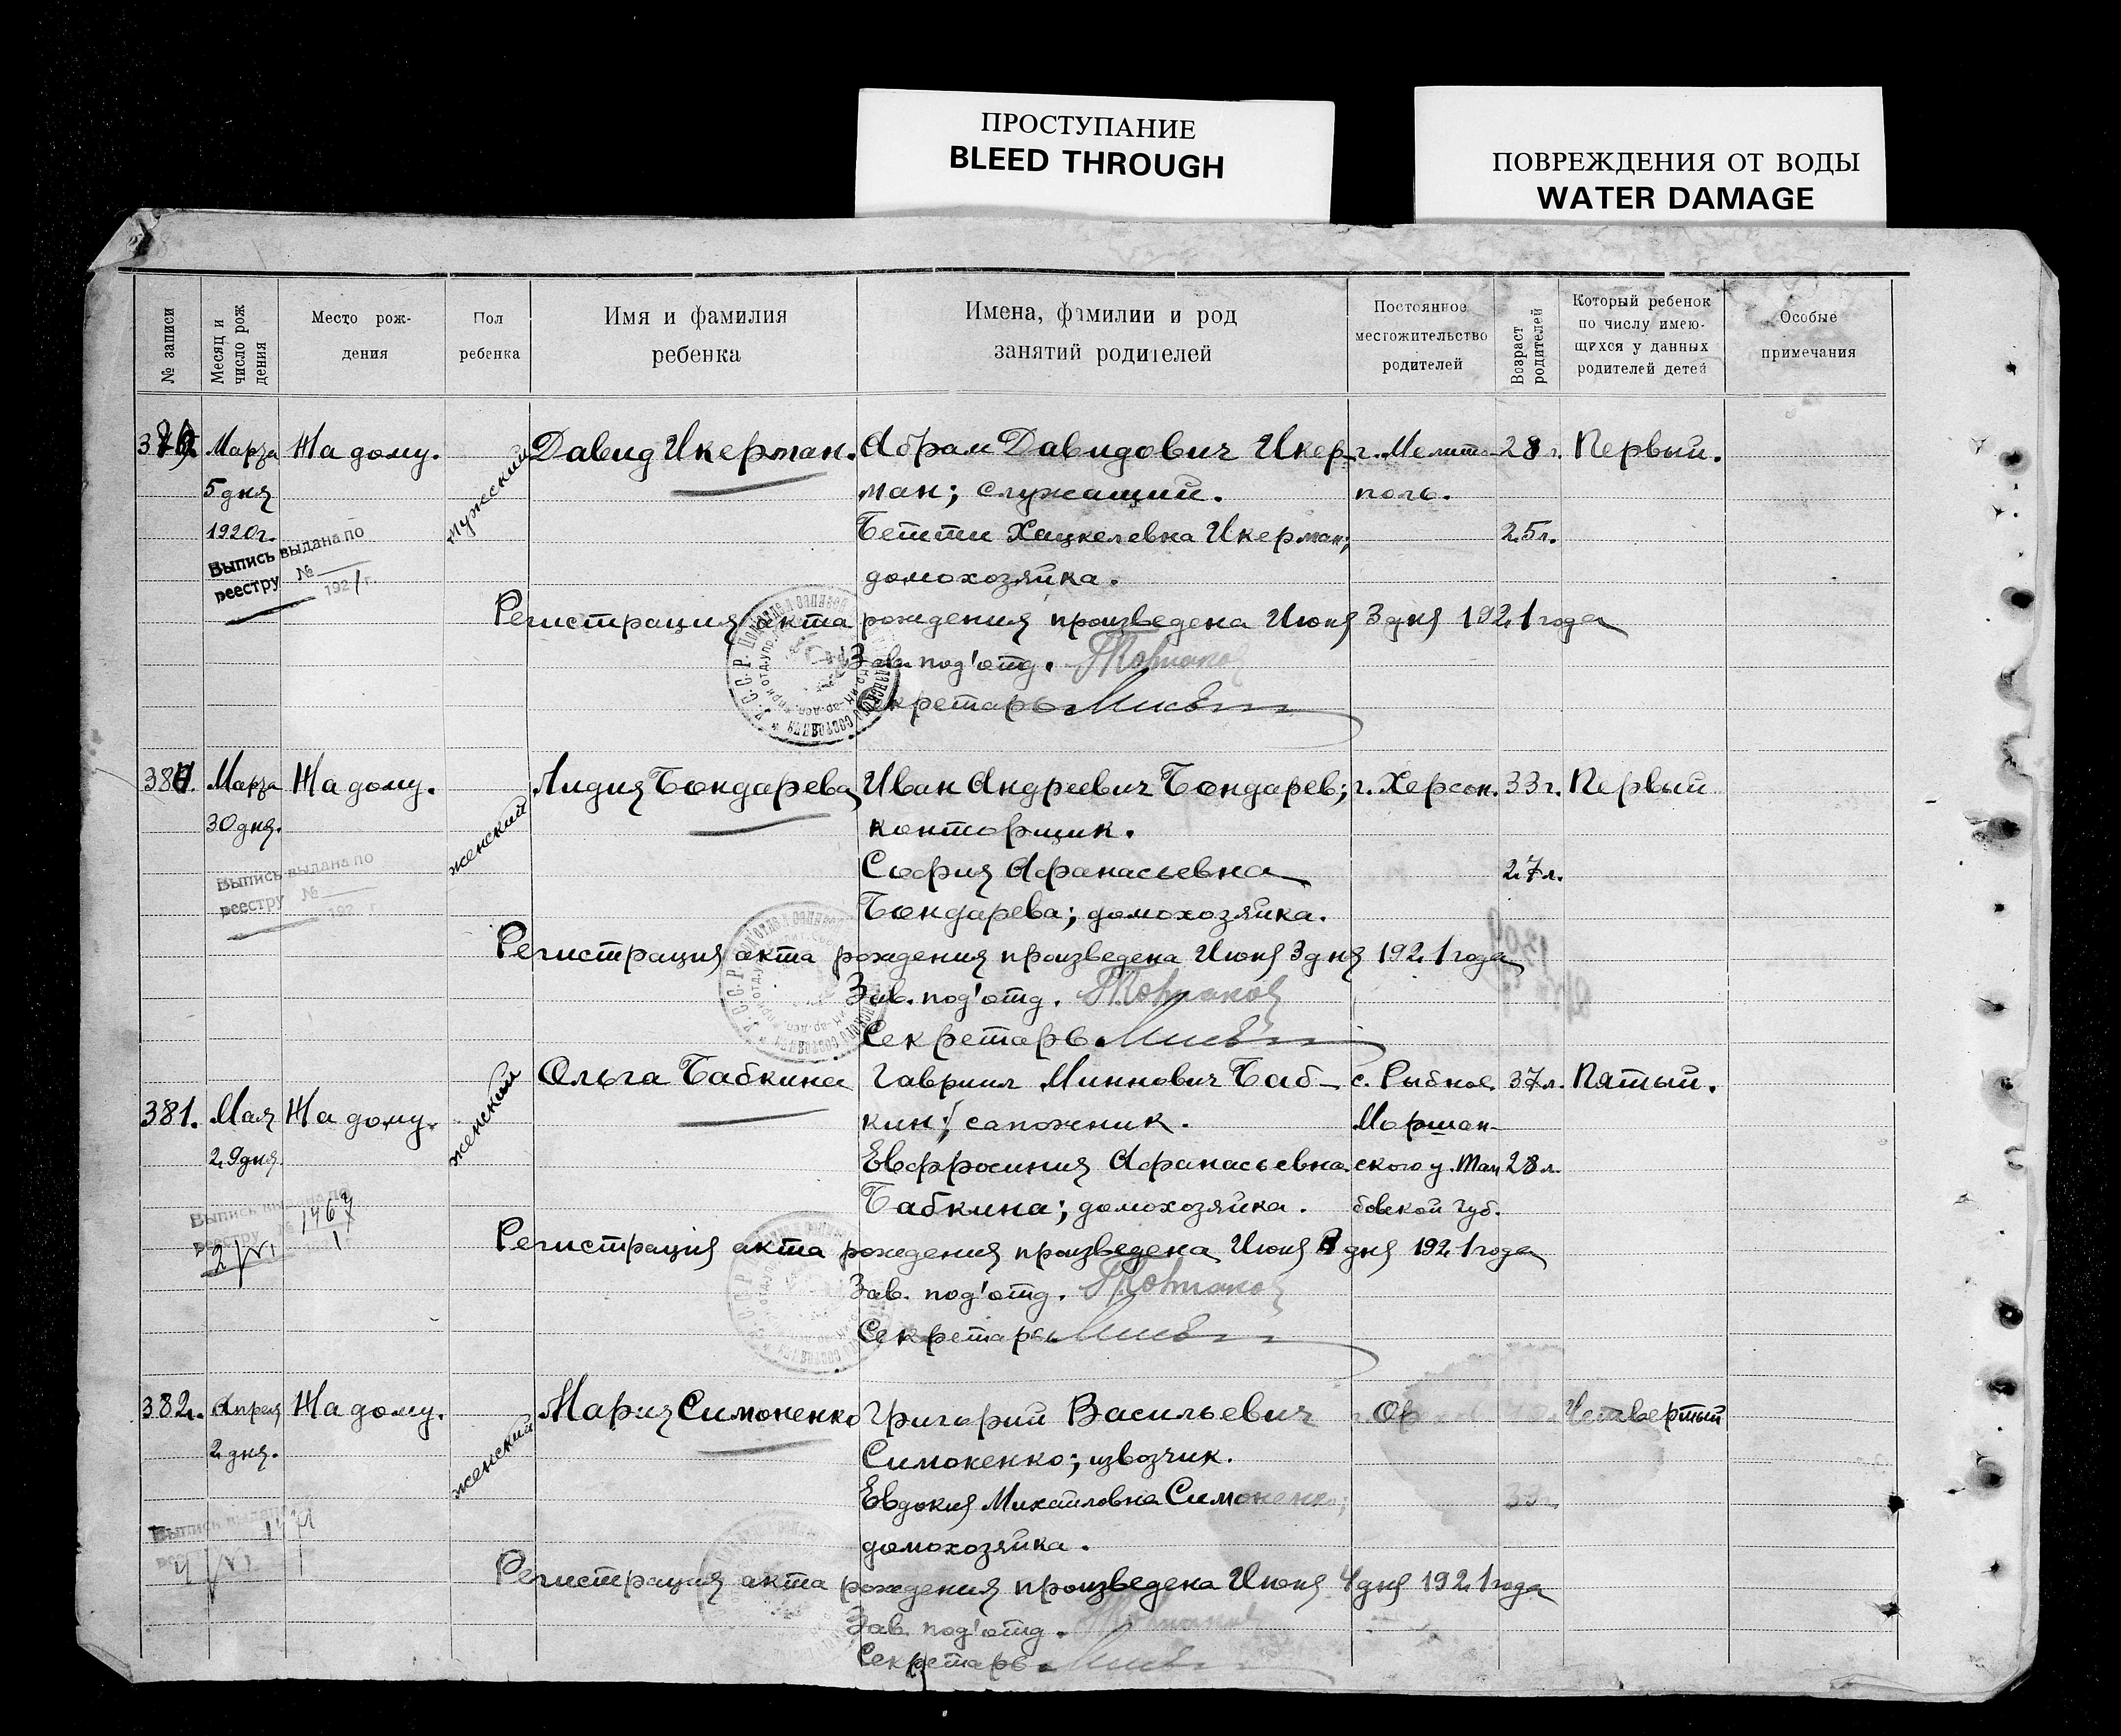 ПРОСТУПАНИЕ
BLEED THROUGH
ПОВРЕЖДЕНИЯ ОТ ВОДЫ
WATER DAMAGE
№ записи
Месяц и число рож дения
Место рож-
дения
Пол
ребенка
Имя и фамилия
ребенка
Имена, фамилии и род
занятий родителей
Постоянное
местожительство
родителей
Возраст родителей
Который ребенок
по числу имею-
щихся у данных
родителей детей
Особые
примечания
Марта На дому. мужеский Давид Икерман. Абрам Давидович Икер- г. Мелито- 28 г. Первый.
5 дня ман; служащий. поль.
1920г. Бетти Хацкелевна Икерман; 25л.
Выпись выдана по
реестру № 1921 г.
домохозяйка.
Регистрация акта рождения произведена Июня 3 дня 1921 года
Зав. под'отд.
Секретарь
380. Марта На дому. женский Лидия Бондарева Иван Андреевич Бондарев; г. Херсон. 33 г. Первый
30 дня. конторщик.
Выпись выдана по
реестру № 192 г.
София Афанасьевна 27л.
Бондарева; домохозяйка.
Регистрация акта рождения произведена Июня 3 дня 1921 года
Зав. под'отд.
Секретарь
Ольга Бабкина Гавриил Миннович Баб- с. Рыбное 37л. Пятый.
381. Мая На дому. женский кин; сапожник. Моршан-
29 дня Евфросиния Афанасьевна ского у. Там 28л.
Бабкина; домохозяйка. бовской губ.
Выпись выдана по
реестру № 1467
2/VI
Регистрация акта рождения произведена Июня дня 1921 года
Зав. под'отд.
Секретарь
382. Апреля На дому. женский Мария Симоненко Григорий Васильевич Четвертый
2 дня. Симоненко; извозчик.
Евдокия Михайловна Симоненко;
Выпись выдана
домохозяйка.
Регистрация акта рождения произведена Июня 4 дня 1921 года
Зав. под'отд.
Секретарь